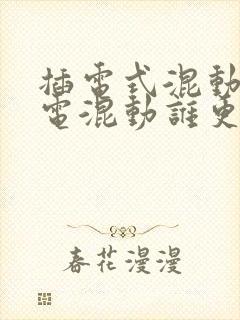 插電式混動
電混動誰更
春花漫漫